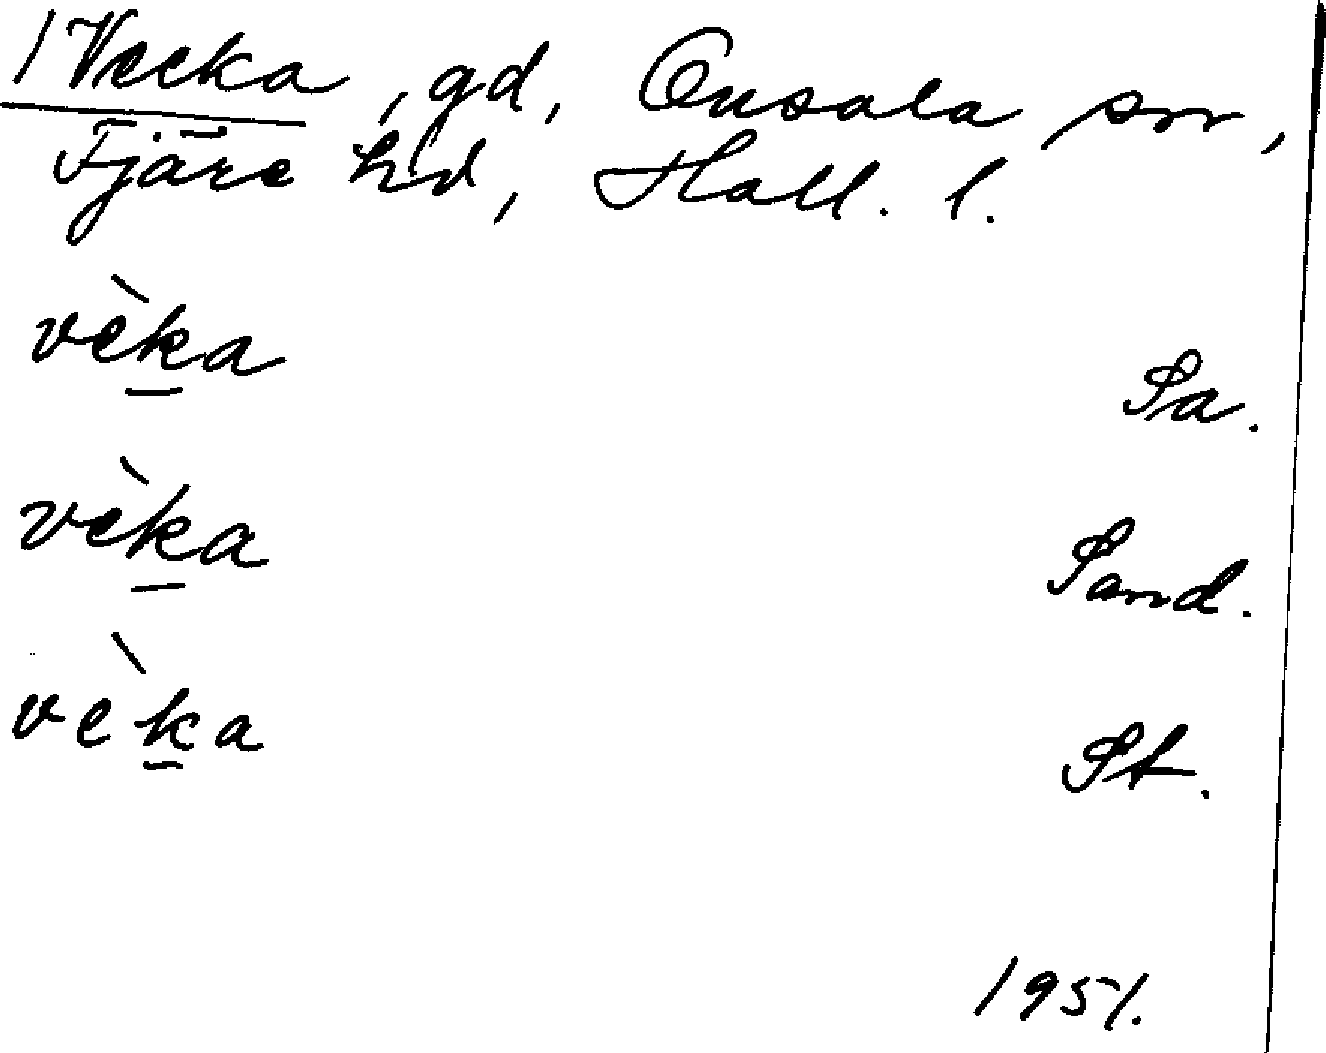 1 Vecka, gd, Onsala sn,
Fjäre hd, Hall. l.
vèka Sa.
vèka Sand.
vèka St.
1951.